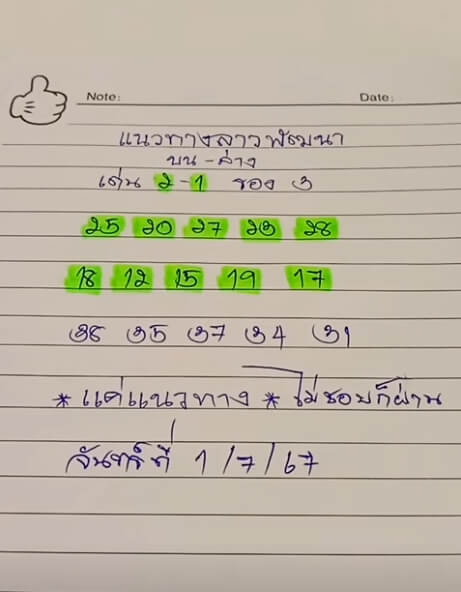 Note: Date:
แนวทางลาวพัฒนา
บน - ล่าง
เด่น 2 - 1 รอง 3
25 20 27 23 28
18 12 15 19 17
38 35 37 34 31
* แค่แนวทาง * ไม่ชอบก็ผ่าน
จันทร์ที่ 1/7/67